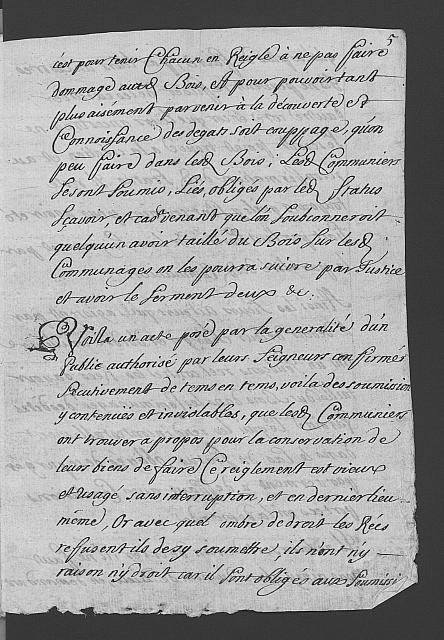 5
c'est pour tenir Chacun en Reigle à ne pas faire
dommage aux d. Bois, et pour pouvoir tant
plus aisément parvenir à la découverte et
Connoissance des degats soit couppage, qu'on
peû faire dans les d. Bois; Les d. Communiers
se sont soumis, Liés, obligés par led. Status
sçavoir et cad. venant que l'on soubçonneroit
quelqu'un avoir taillé du Bois sur les d.
Communages on les pourra suivre par Justice
et avoir le serment d'eux &c.
Voila un acte posé par la generalité d'un
Public authorisé par leurs Seigneurs confirmés
de tems en tems, voila des soumission
y contenuës et inviolables, que les d. Communiers
ont trouver a propos pour la conservation de
leurs biens de faire Ce reiglement est vieux
et usagé sans interruption, et en dernier lieu
même, Or avec quel ombre de droit les Rées
refusent ils de s'y soumettre, ils n'ont n'y
raison n'y droit car il sont obligés aux soumissi